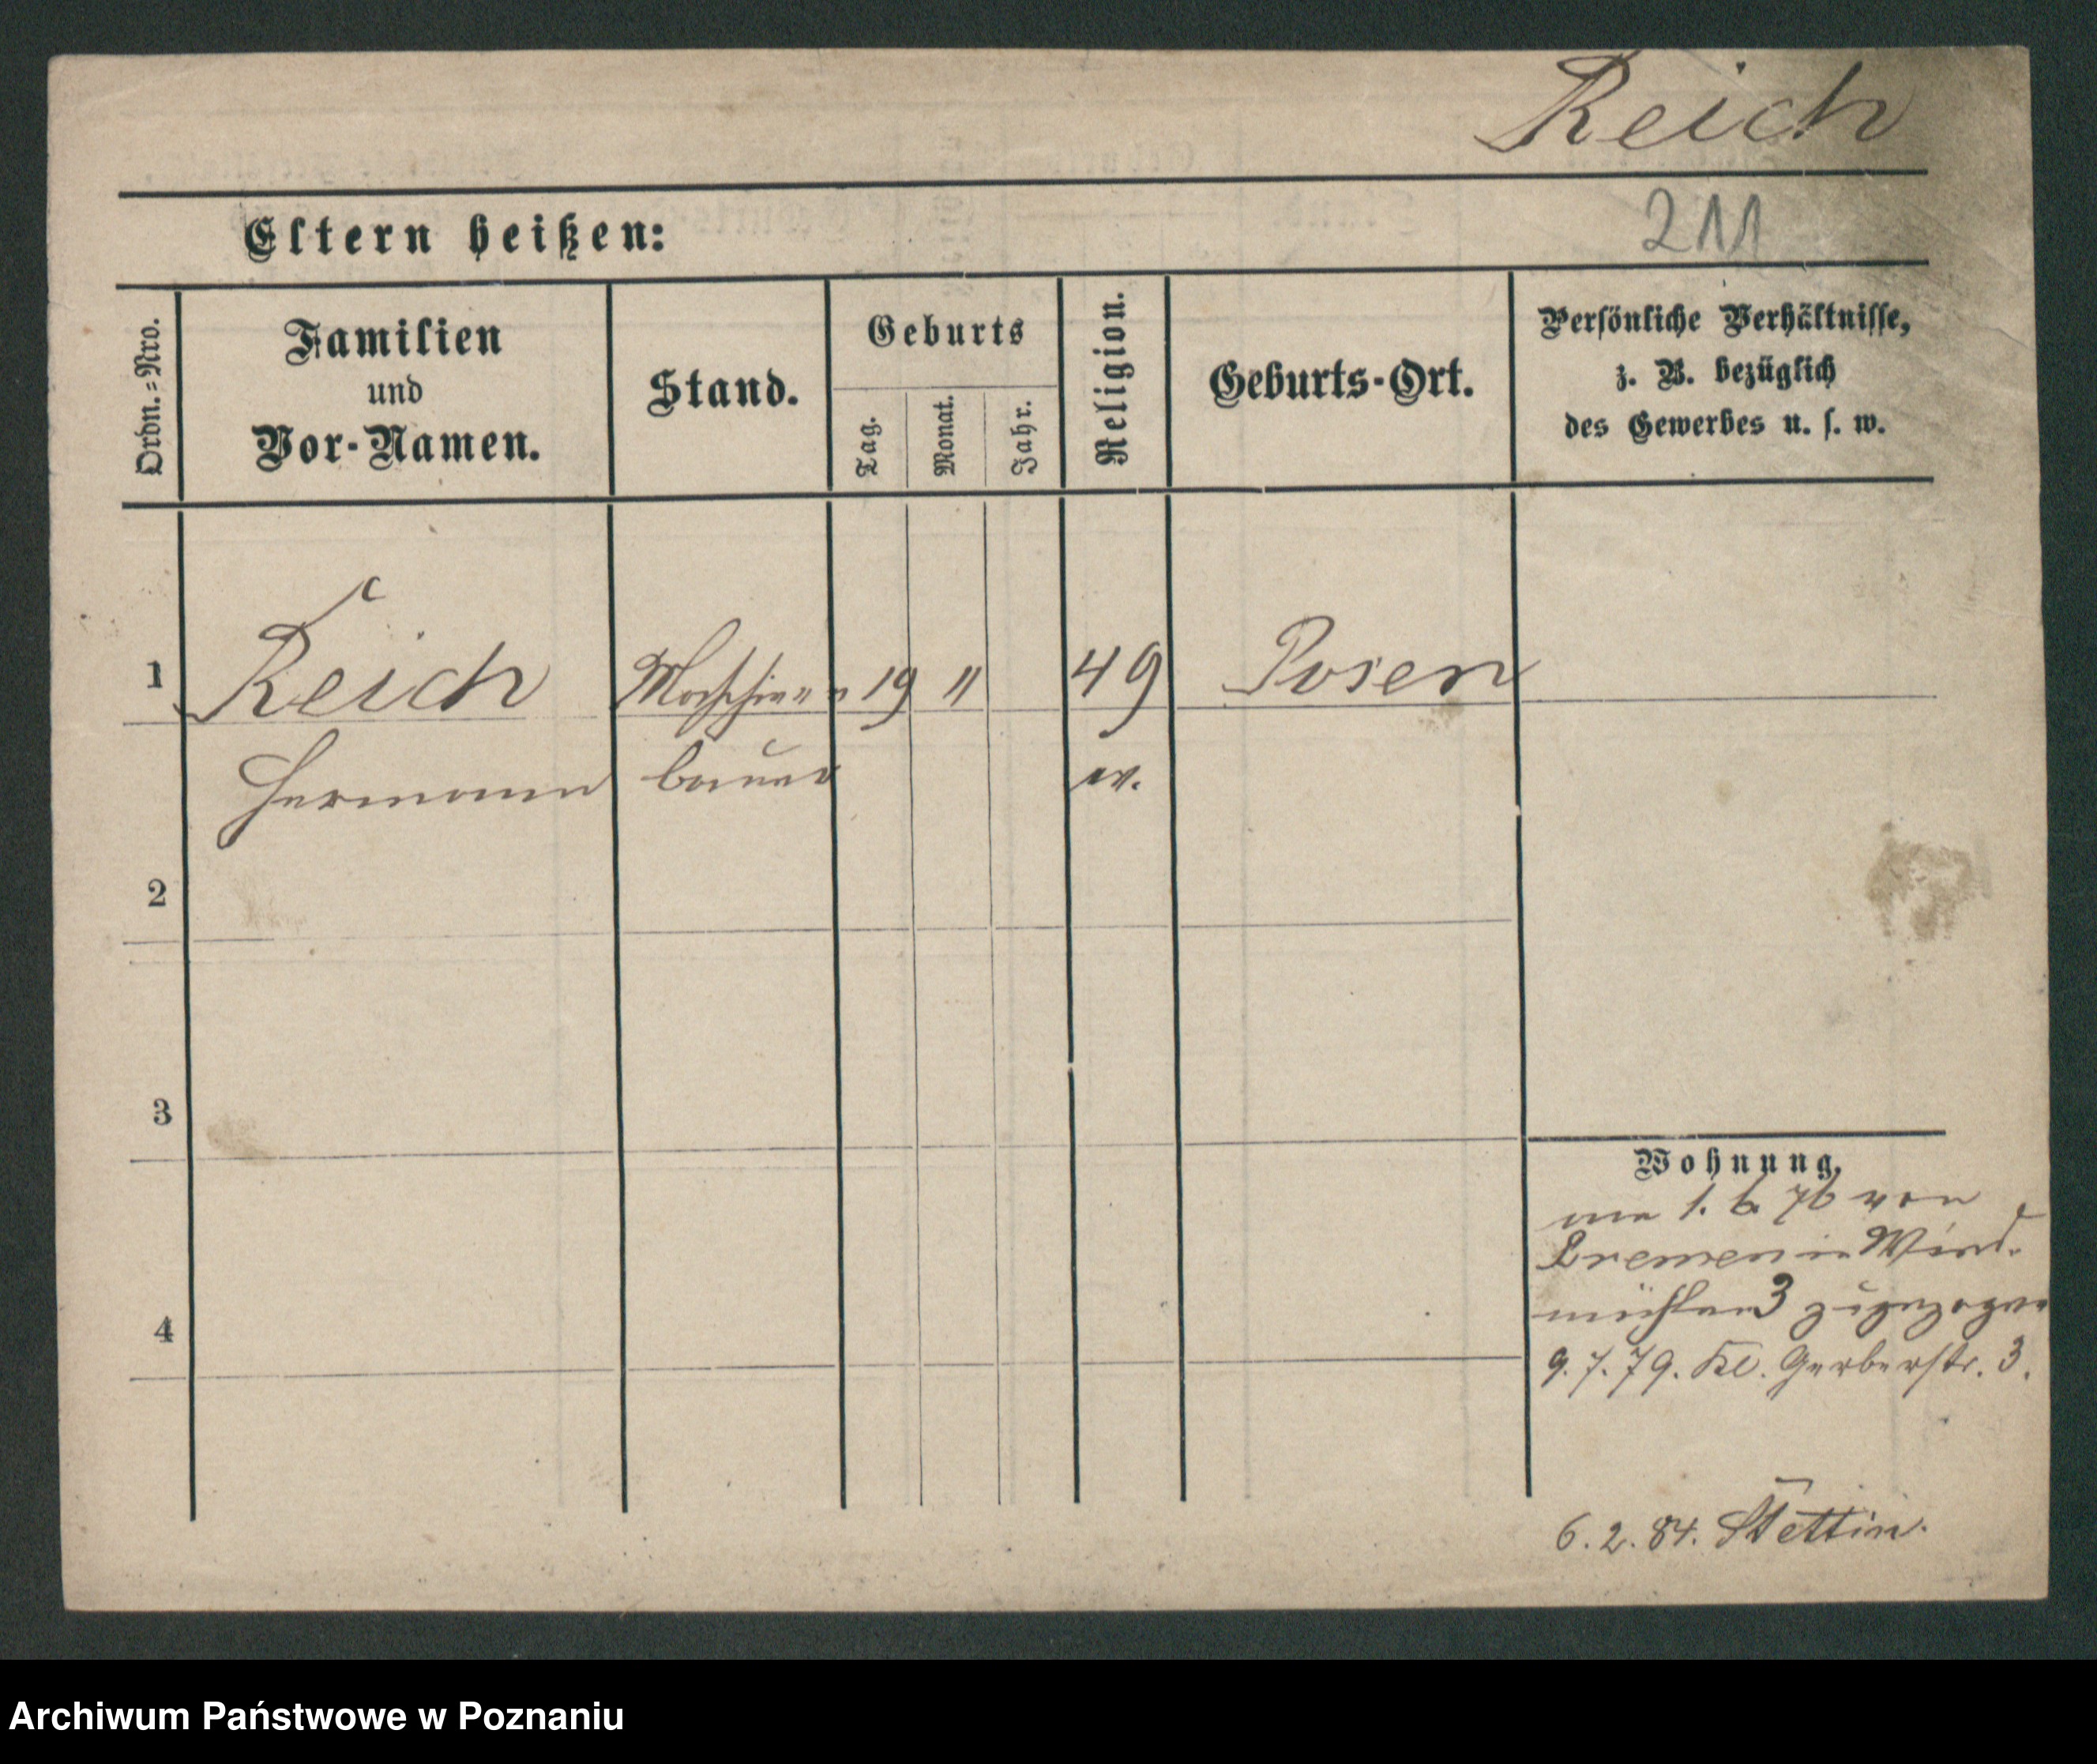 Reich
211
Eltern heißen:
Ordn.=Nro.
Familien
und
Vor-Namen.
Stand.
Geburts
Tag.
Monat.
Jahr.
Religion.
Geburts-Ort.
Persönliche Verhältnisse,
z. B. bezüglich
des Gewerbes u. s. w.
1 Reich Maschinen 19 11 49 Posen
Hermann bauer ev.
2
3
4
Wohnung.
1. 6. 76 von
Bremen in Wind-
mühlen 3 zugezogen
9. 7. 79. Kl. Gerberstr. 3.
6. 2. 84. Stettin.
Archiwum Państwowe w Poznaniu